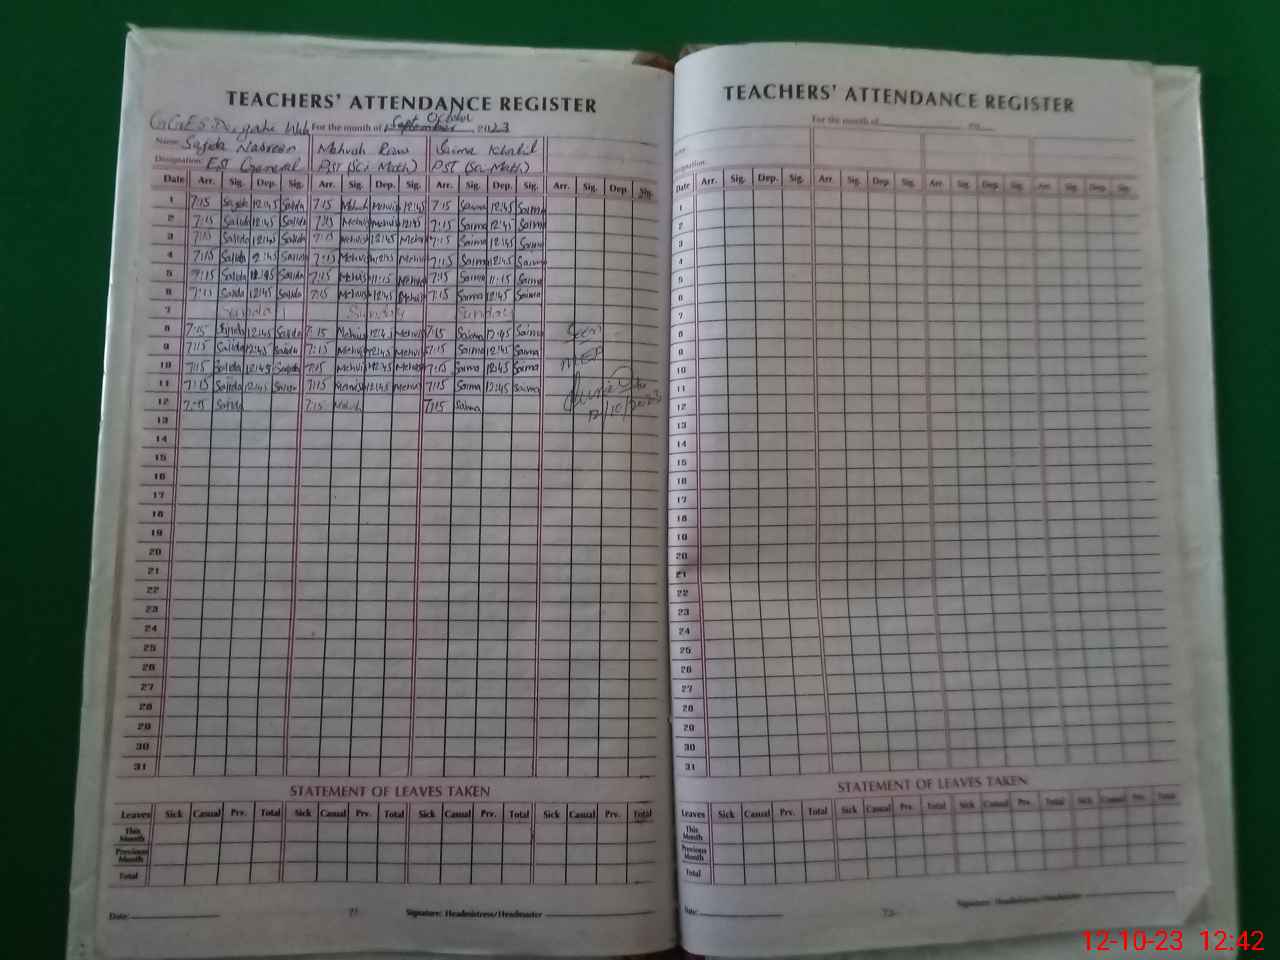 TEACHERS' ATTENDANCE REGISTER
GGES For the month of Sept October 2023
Name: Sajida Nasreen Mehvish Saima Khalil
Designation: EST General PST (Sci-Math) PST (Sci-Math)
Date Arr. Sig. Dep. Sig. Arr. Sig. Dep. Sig. Arr. Sig. Dep. Sig. Arr. Sig. Dep. Sig.
1 7:15 Sajida 12:45 Sajida 7:15 Mehvish Mehvish 12:45 7:15 Saima 12:45 Saima
2 7:15 Sajida 12:45 Sajida 7:15 Mehvish Mehvish 12:45 7:15 Saima 12:45 Saima
3 7:15 Sajida 12:45 Sajida 7:15 Mehvish 12:45 Mehvish 7:15 Saima 12:45 Saima
4 7:15 Sajida 12:45 Sajida 7:15 Mehvish 12:45 Mehvish 7:15 Saima 12:45 Saima
5 7:15 Sajida Sajida 7:15 Mehvish 11:15 Mehvish 7:15 Saima 11:15 Saima
6 7:15 Sajida 12:45 Sajida 7:15 Mehvish 12:45 Mehvish 7:15 Saima 12:45 Saima
7 Sunday Sunday Sunday
8 7:15 Sajida 12:45 Sajida 7:15 Mehvish 12:45 Mehvish 7:15 Saima 12:45 Saima Seen
9 7:15 Sajida 12:45 Sajida 7:15 Mehvish 12:45 Mehvish 7:15 Saima 12:45 Saima
10 7:15 Sajida 12:45 Sajida 7:15 Mehvish 12:45 Mehvish 7:15 Saima 12:45 Saima MEA
11 7:15 Sajida 12:45 Sajida 7:15 Mehvish 12:45 Mehvish 7:15 Saima 12:45 Saima
12 7:15 Sajida 7:15 Mehvish 7:15 Saima 12/10/2023
13
14
15
16
17
18
19
20
21
22
23
24
25
26
27
28
29
30
31
STATEMENT OF LEAVES TAKEN
Leaves Sick Casual Prv. Total Sick Casual Prv. Total Sick Casual Prv. Total Sick Casual Prv. Total
This Month
Previous Month
Total
Date: Signature: Headmistress/Headmaster
TEACHERS' ATTENDANCE REGISTER
For the month of 20
Name
Designation:
Date Arr. Sig. Dep. Sig. Arr. Sig. Dep. Sig. Arr. Sig. Dep. Sig. Arr. Sig. Dep. Sig.
1
2
3
4
5
6
7
8
9
10
11
12
13
14
15
16
17
18
19
20
21
22
23
24
25
26
27
28
29
30
31
STATEMENT OF LEAVES TAKEN
Leaves Sick Casual Prv. Total Sick Casual Prv. Total Sick Casual Prv. Total Sick Casual Prv. Total
This Month
Previous Month
Total
Date: Signature: Headmistress/Headmaster
12-10-23 12:42